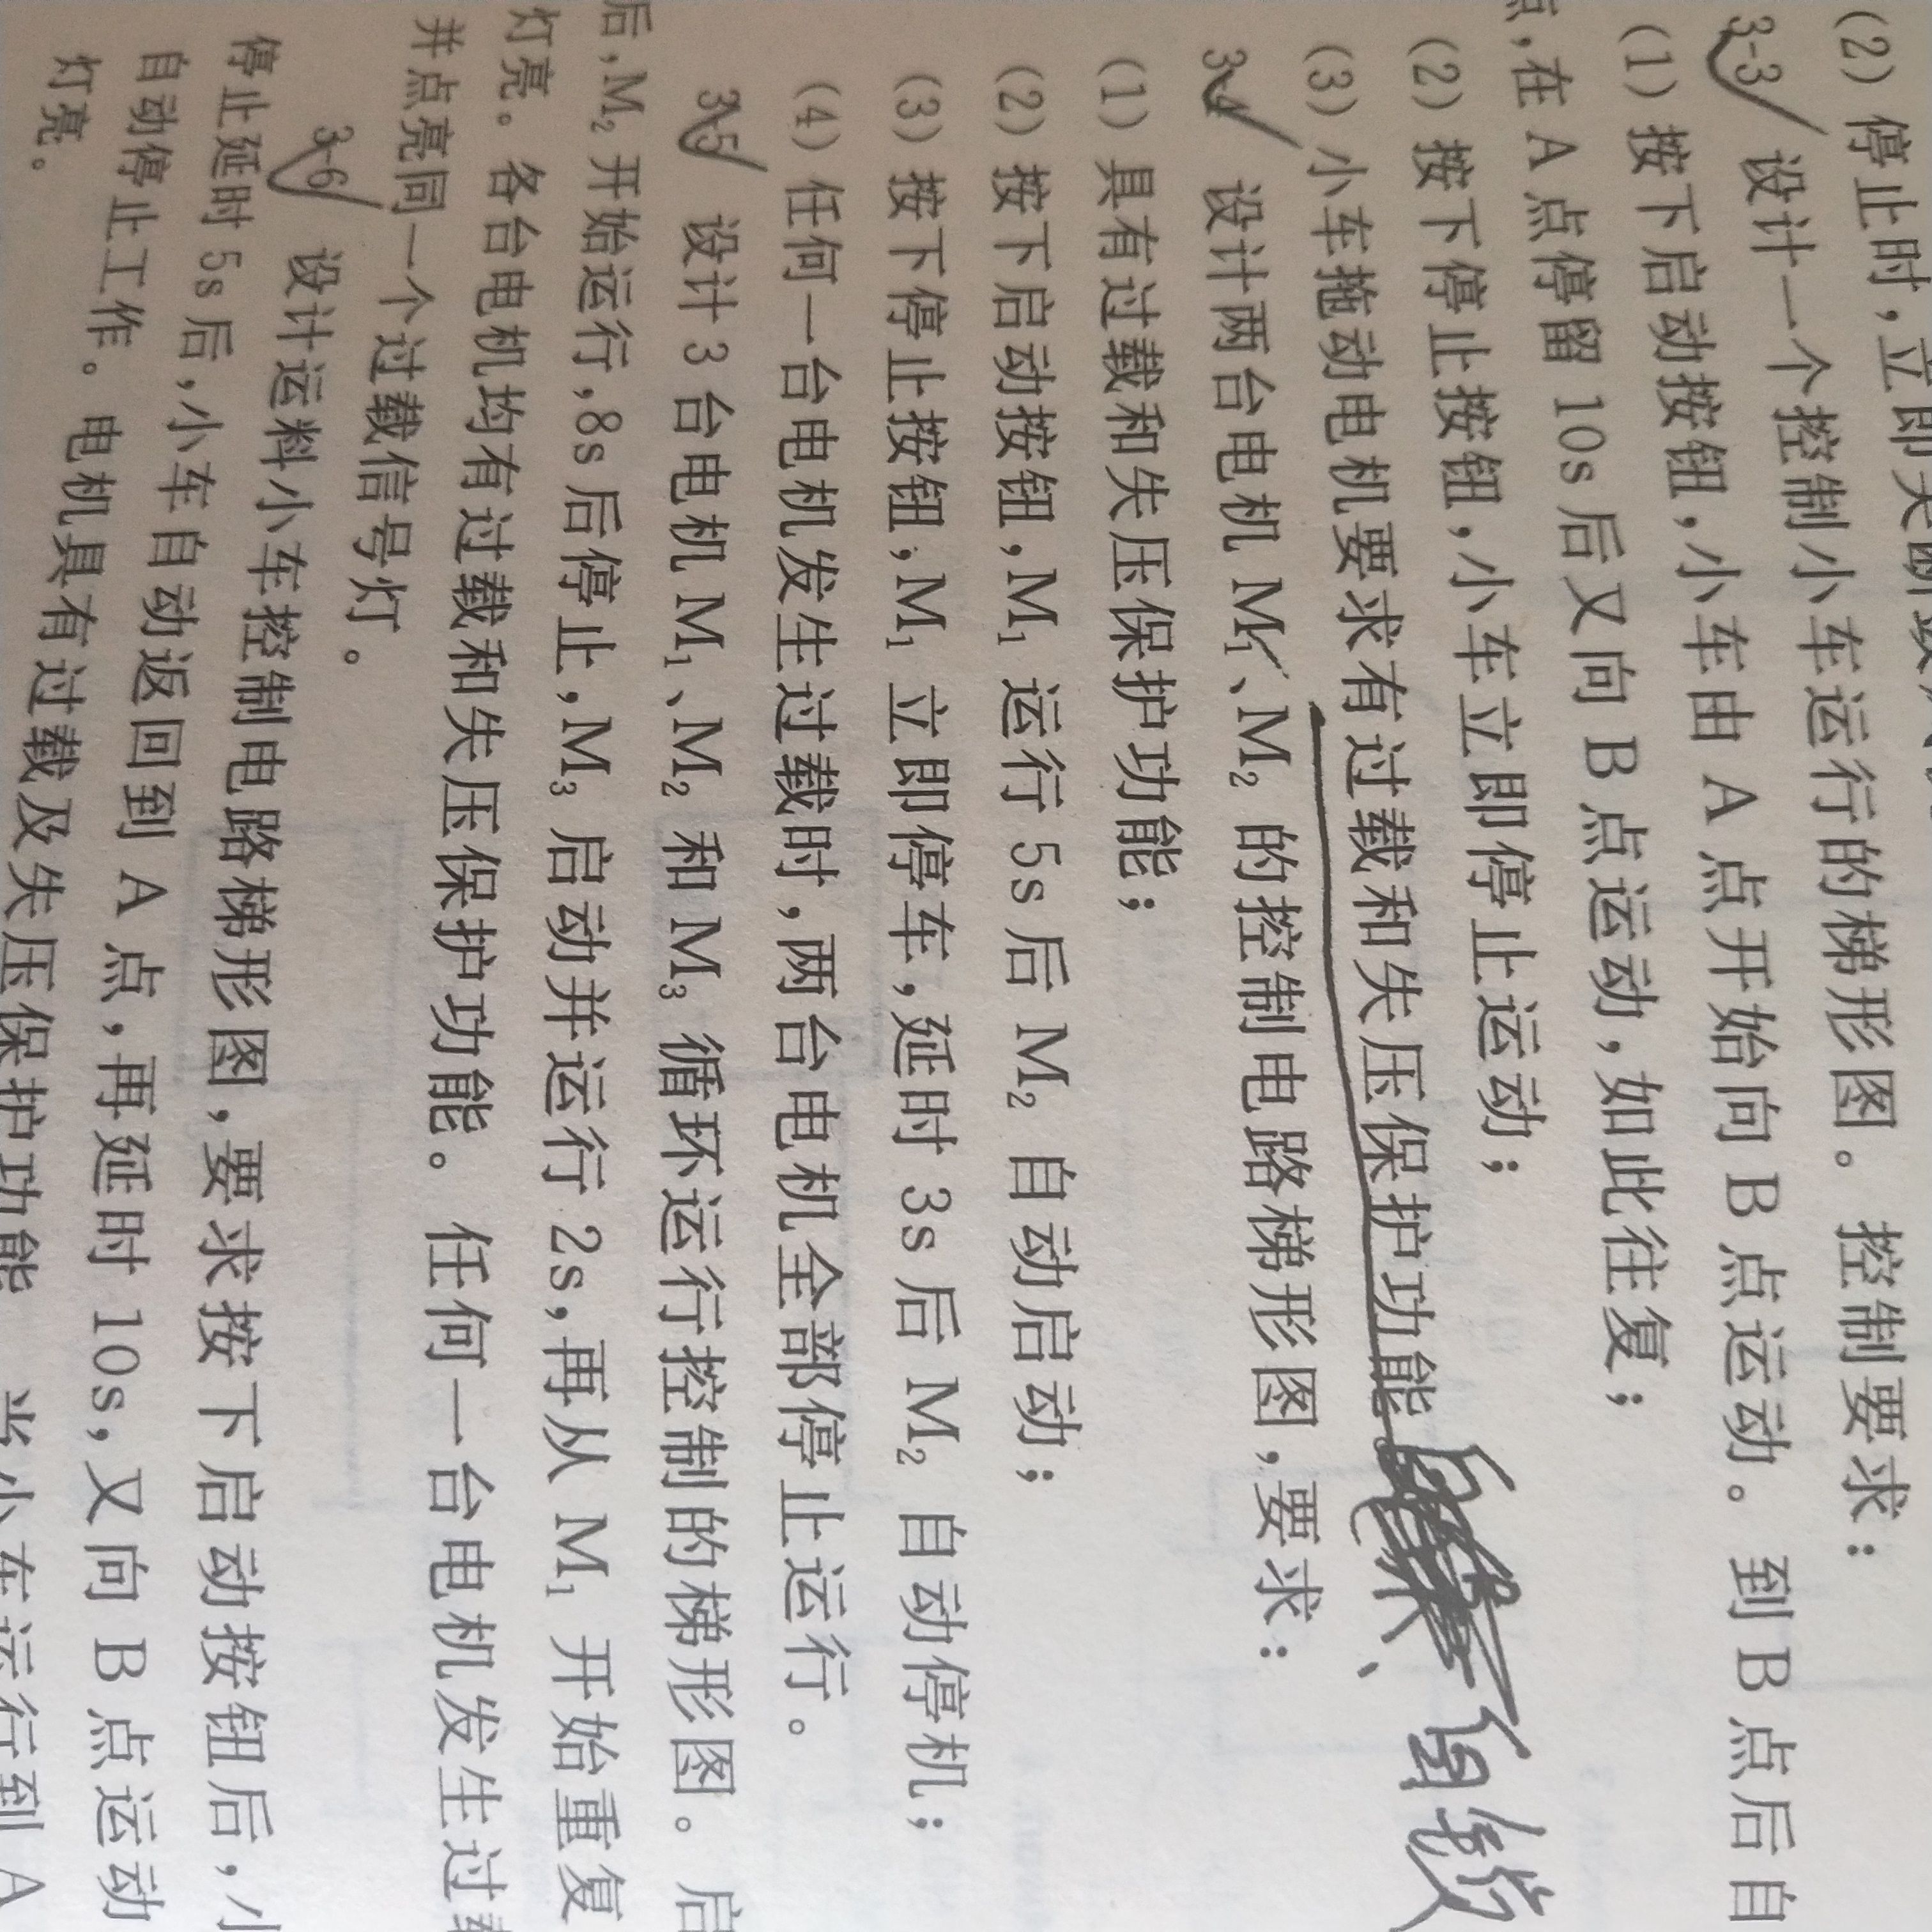 (2) 停止时,立即关断
3-3 设计一个控制小车运行的梯形图。控制要求:
(1) 按下启动按钮,小车由 A 点开始向 B 点运动。到 B 点后自
点,在 A 点停留 10s 后又向 B 点运动,如此往复;
(2) 按下停止按钮,小车立即停止运动;
(3) 小车拖动电机要求有过载和失压保护功能 、自锁
3-4 设计两台电机 M₁、M₂ 的控制电路梯形图,要求:
(1) 具有过载和失压保护功能;
(2) 按下启动按钮,M₁ 运行 5s 后 M₂ 自动启动;
(3) 按下停止按钮,M₁ 立即停车,延时 3s 后 M₂ 自动停机;
(4) 任何一台电机发生过载时,两台电机全部停止运行。
3-5 设计 3 台电机 M₁、M₂ 和 M₃ 循环运行控制的梯形图。
后,M₂ 开始运行,8s 后停止,M₃ 启动并运行 2s,再从 M₁ 开始重复
灯亮。各台电机均有过载和失压保护功能。任何一台电机发生过载
并点亮同一个过载信号灯。
3-6 设计运料小车控制电路梯形图,要求按下启动按钮后,小
停止延时 5s 后,小车自动返回到 A 点,再延时 10s,又向 B 点运动
自动停止工作。电机具有过载及失压保护功能 当小车运行到 A
灯亮。